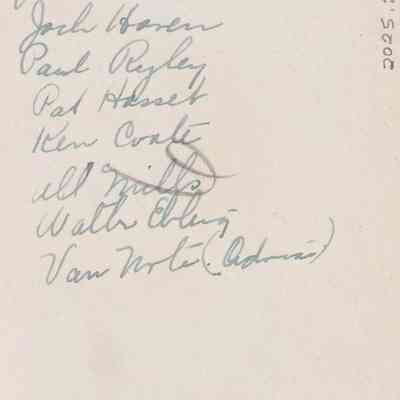 Jack Haven
Paul Ryley
Pat Hasset
Ken Coate
Mills
Walter Ebling
Van Note (
2025.